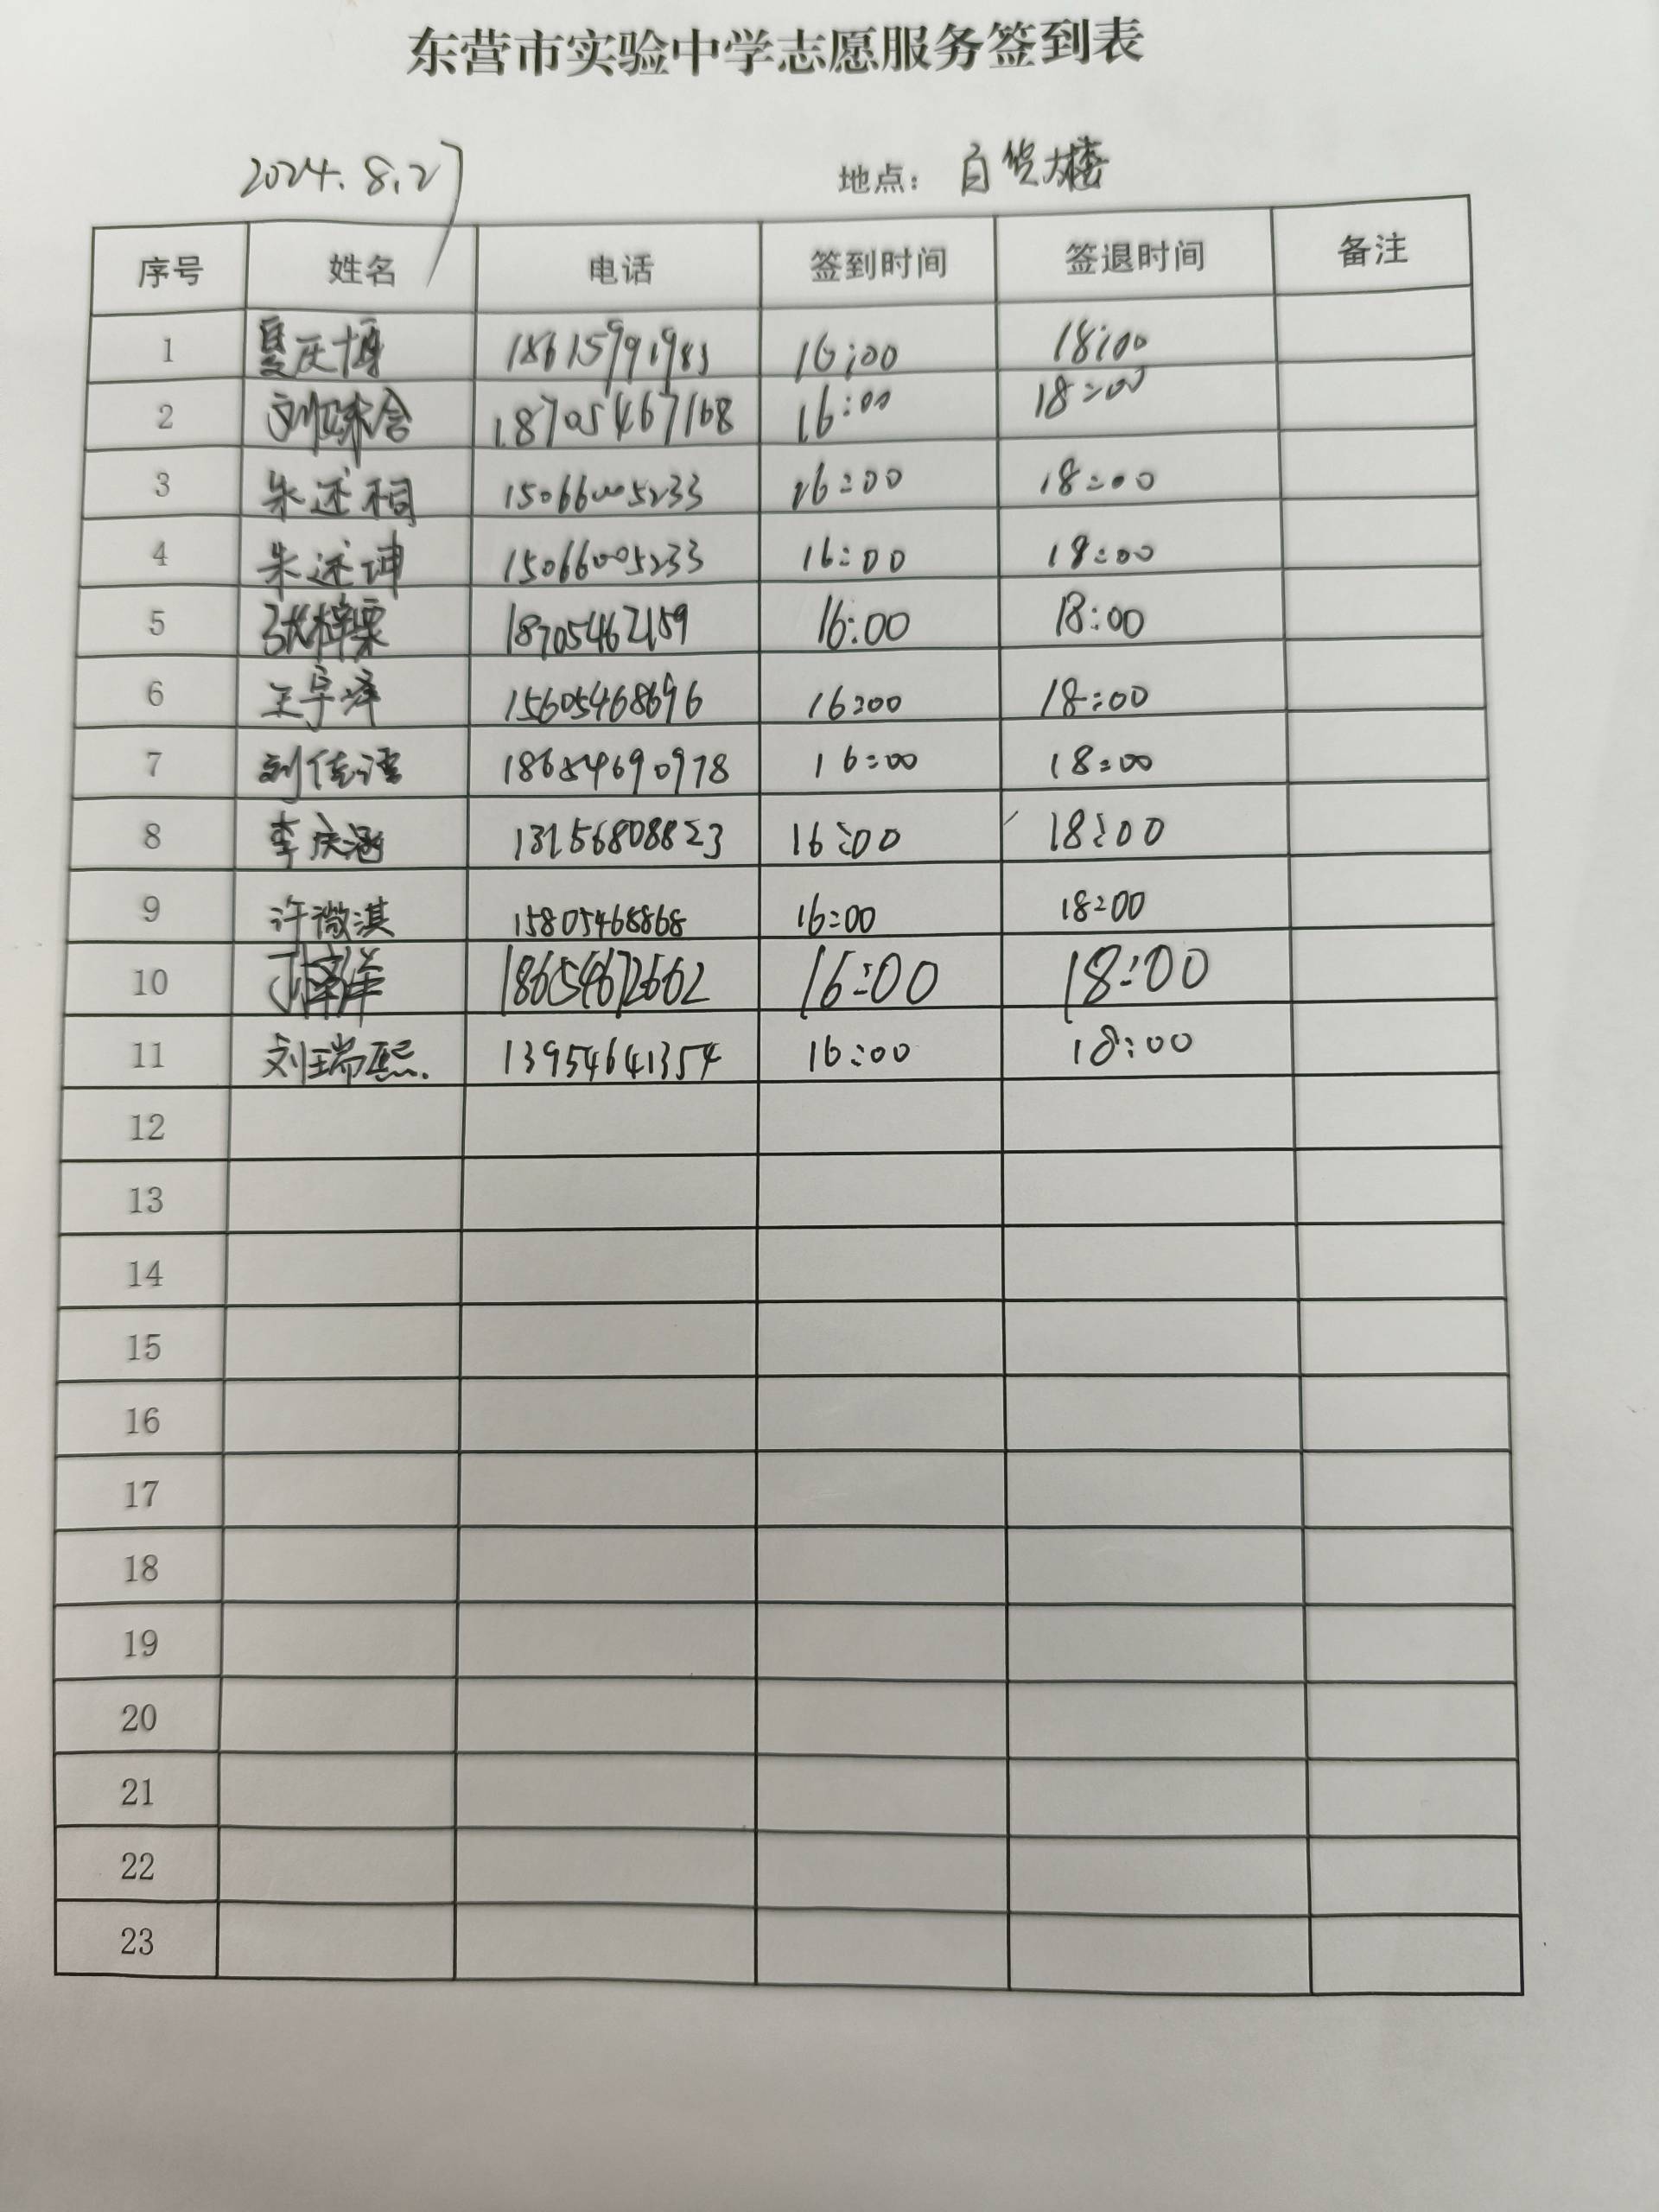 东营市实验中学志愿服务签到表
2024.8.27 地点: 百货大楼
序号 姓名 电话 签到时间 签退时间 备注
1 夏庆博 18615991983 16:00 18:00
2 18705467168 16:00 18:00
3 朱述相 15066005233 16:00 18:00
4 朱述坤 15066005233 16:00 18:00
5 张梓栗 18705462159 16:00 18:00
6 王宇泽 15605468696 16:00 18:00
7 刘佳 18654690978 16:00 18:00
8 李庆涵 16:00 18:00
9 许微淇 15805468868 16:00 18:00
10 丁泽洋 18654672662 16:00 18:00
11 刘瑞熙. 13954641354 16:00 18:00
12
13
14
15
16
17
18
19
20
21
22
23